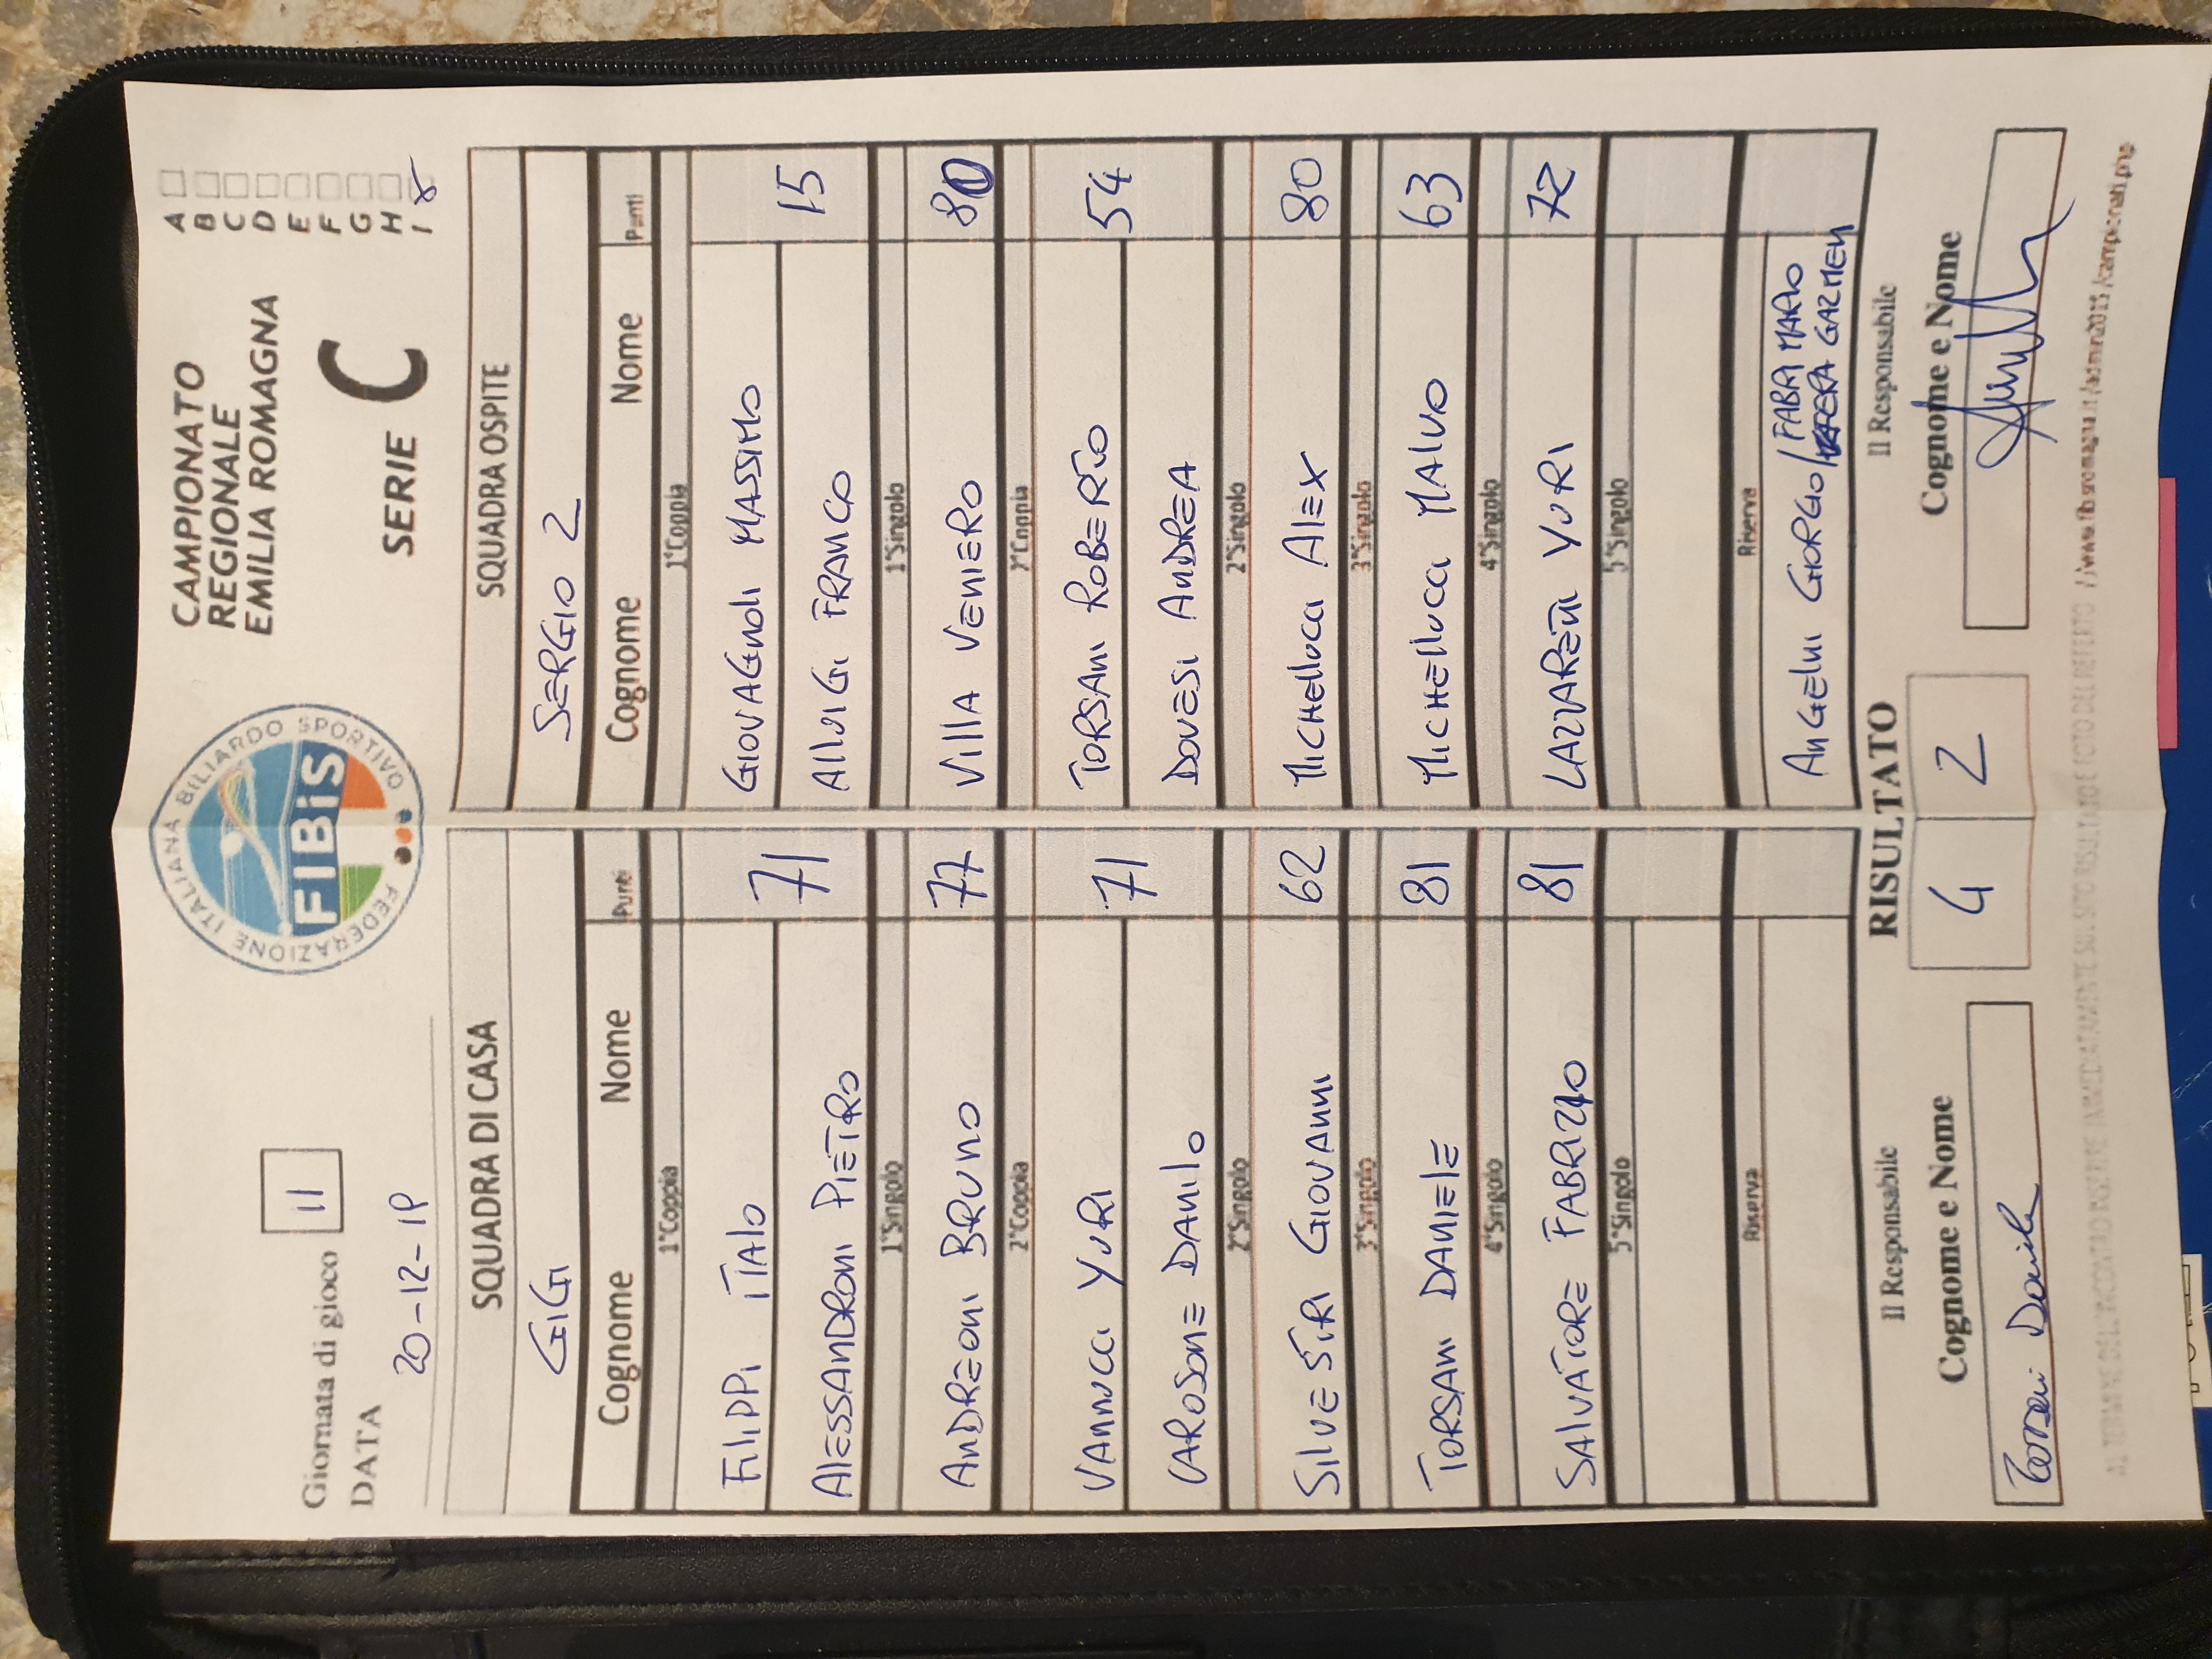 Giornata di gioco 11
DATA 20-12-19
FEDERAZIONE ITALIANA BILIARDO SPORTIVO
FIBiS
CAMPIONATO
REGIONALE
EMILIA ROMAGNA
SERIE C
A
B
C
D
E
F
G
H
I
SQUADRA DI CASA
GIGI
Cognome Nome Punti
1°Coppia
FILIPPI ITALO
ALESSANDRONI PIETRO 71
1°Singolo
ANDREONI BRUNO 77
2°Coppia
VANNUCCI YURI 71
CAROSONE DANILO
2°Singolo
SILVESTRI GIOVANNI 62
3°Singolo
TORSANI DANIELE 81
4°Singolo
SALVATORE FABRIZIO 81
5°Singolo
Riserva
SQUADRA OSPITE
SERGIO 2
Cognome Nome Punti
1°Coppia
GIOVAGNOLI MASSIMO
ALLUIGI FRANCO 15
1°Singolo
VILLA VENIERO 80
2°Coppia
TORSANI ROBERTO 54
DOVESI ANDREA
2°Singolo
MICHELLUCCI ALEX 80
3°Singolo
MICHELLUCCI MALVO 63
4°Singolo
LAZZARETTI YURI 72
5°Singolo
Riserva
ANGELINI GIORGIO/FABBRI MARIO
GAZMEN
RISULTATO
4 2
Il Responsabile
Cognome e Nome
Torsani Daniele
Il Responsabile
Cognome e Nome